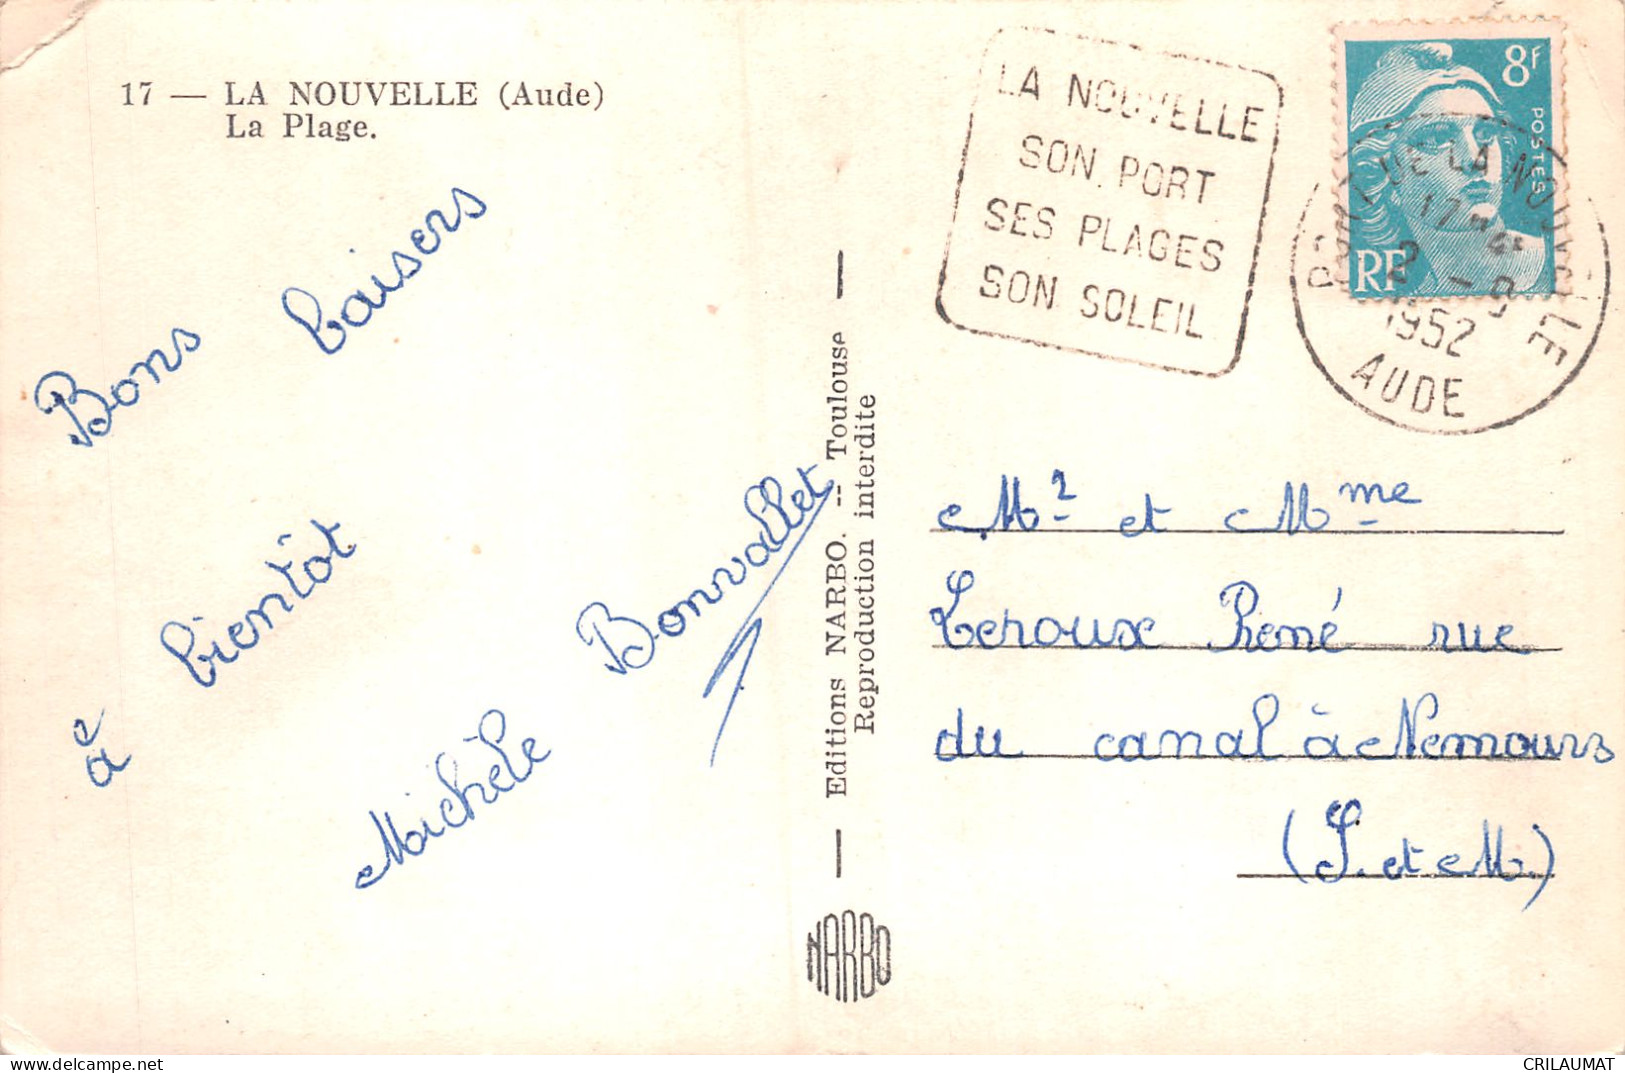 17 — LA NOUVELLE (Aude)
La Plage.
Bons baisers
à bientôt
Michèle Bonvallet
Editions NARBO. -- Toulouse
Reproduction interdite
NARBO
LA NOUVELLE
SON PORT
SES PLAGES
SON SOLEIL
8F
POSTES
RF
DE LA NOUVELLE
2 - 9
1952
AUDE
Mr et Mme
Leroux René rue
du canal à Nemours
(S. et M.)
delcampe.net
CRILAUMAT